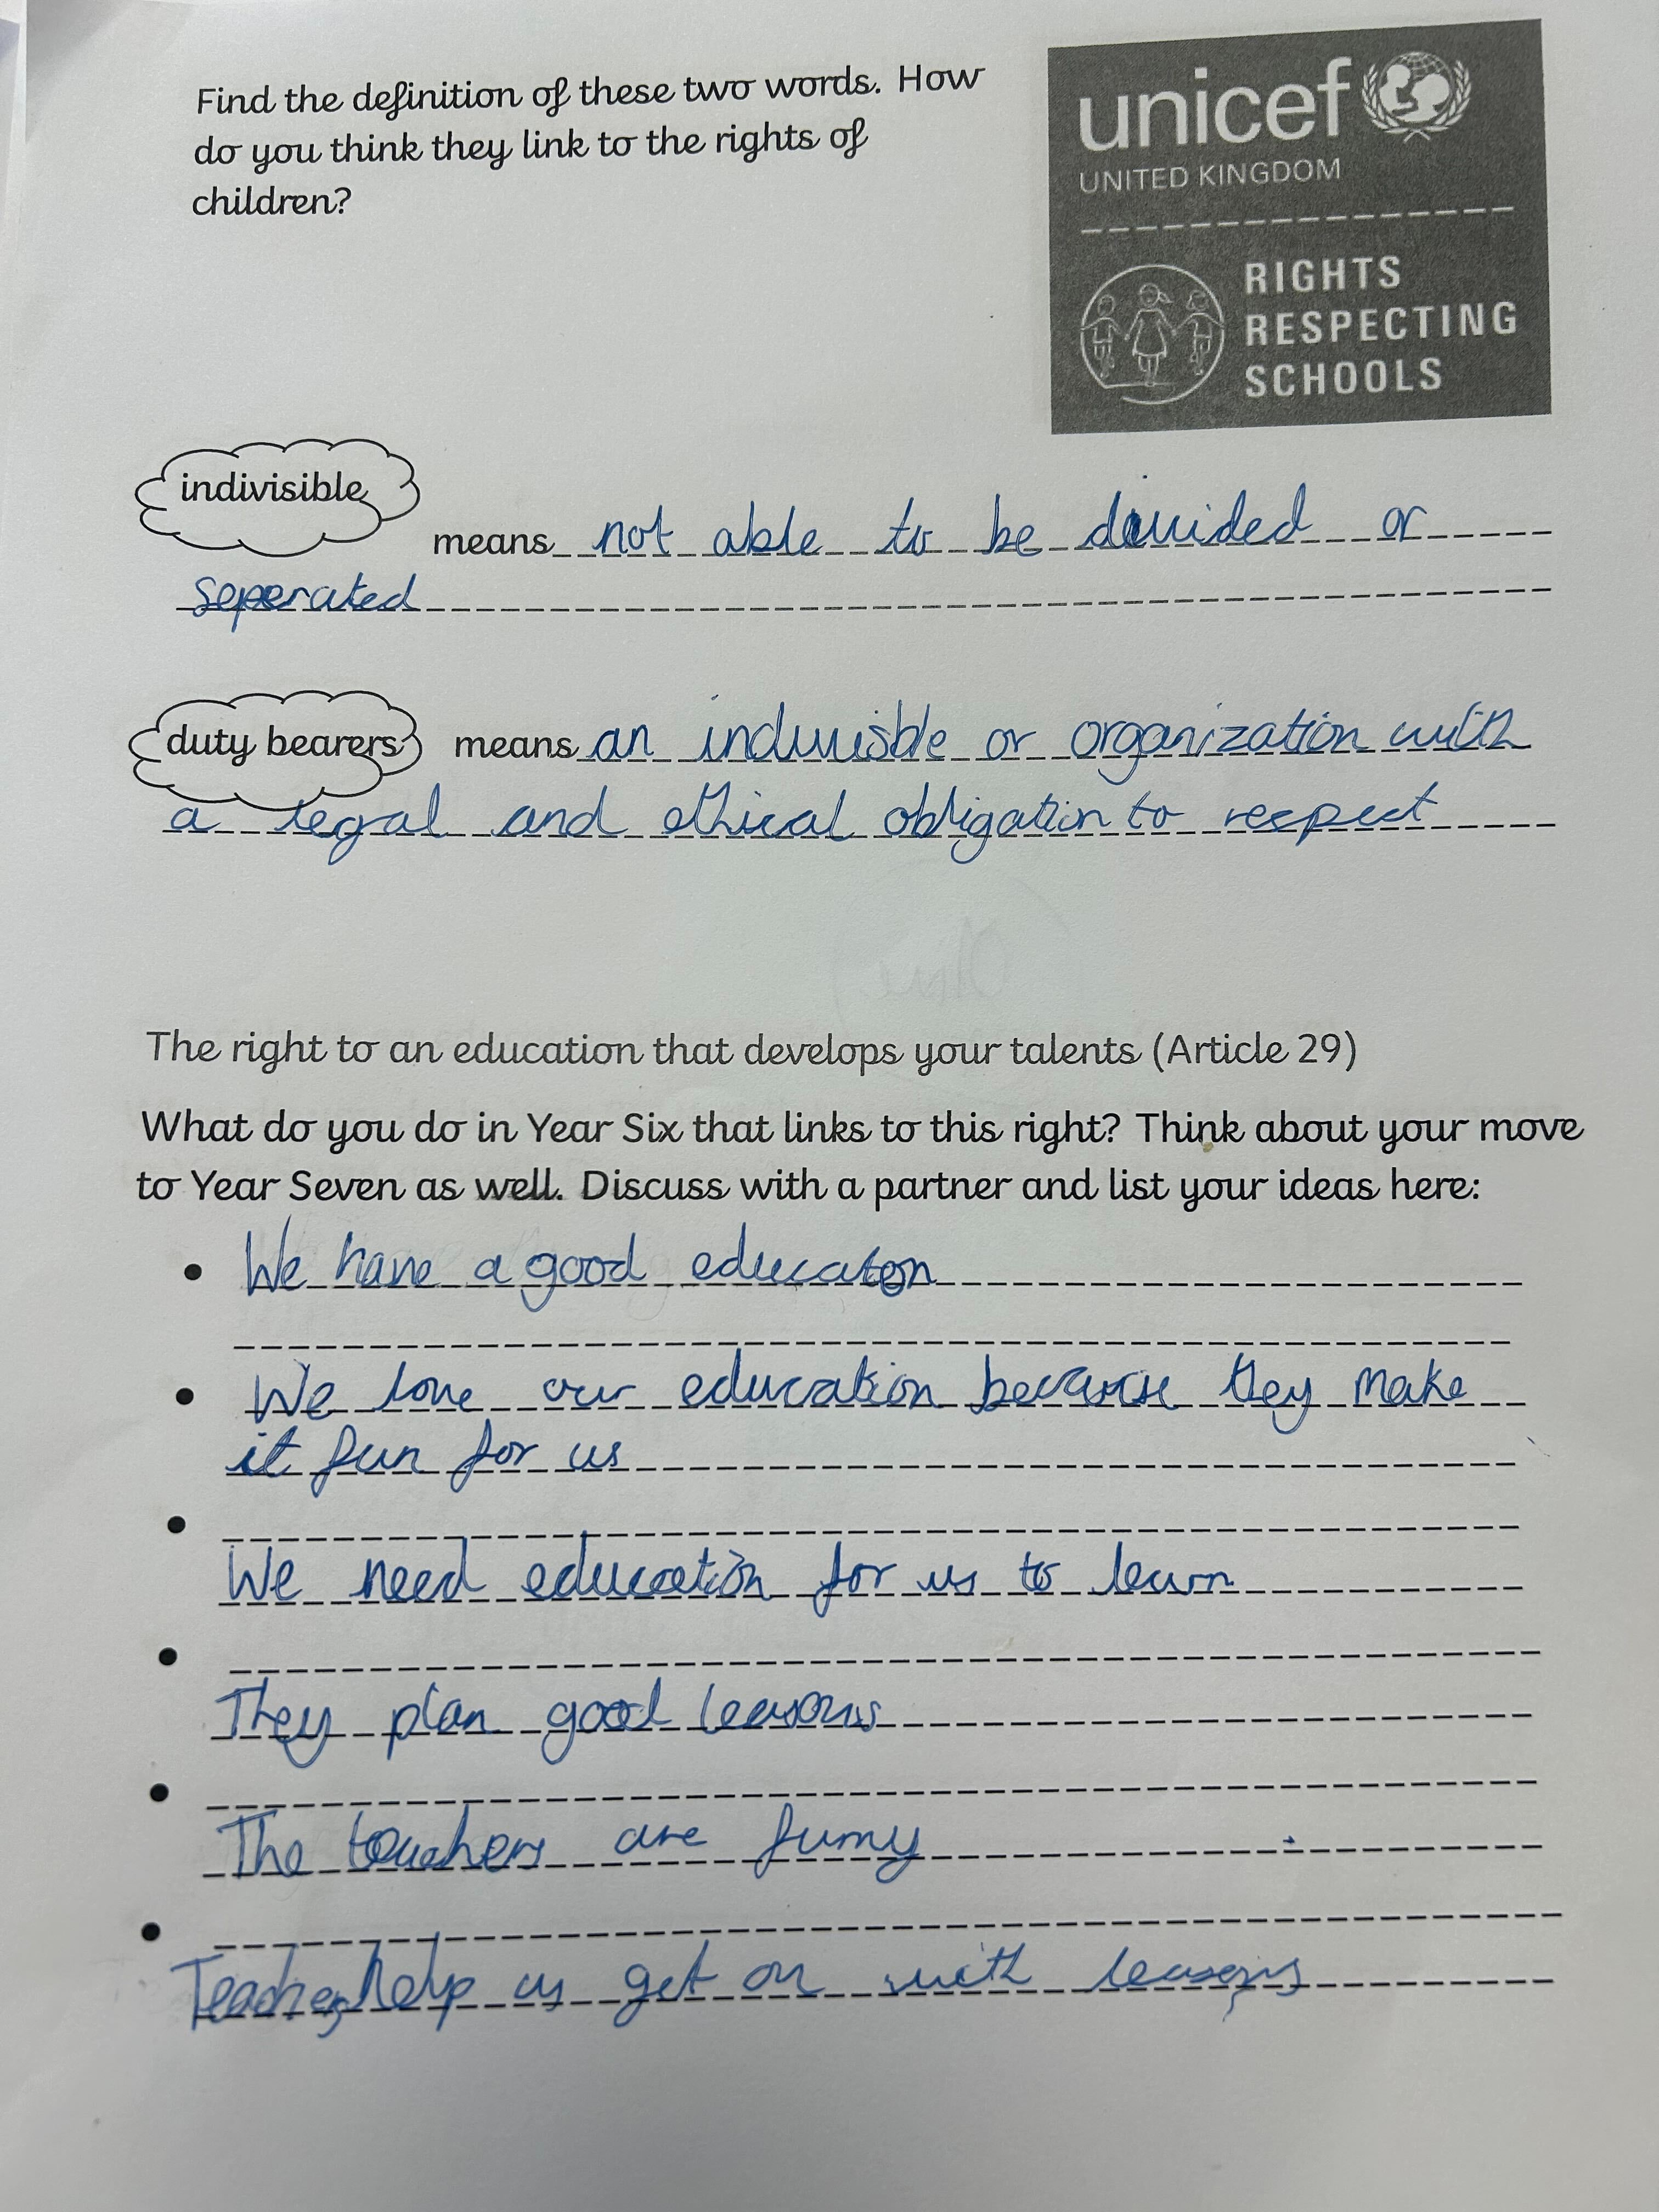 Find the definition of these two words. How
do you think they link to the rights of
children?
unicef
UNITED KINGDOM
RIGHTS
RESPECTING
SCHOOLS
indivisible
means not able to be divided or
seperated
duty bearers means an indivisble or organization with
a legal and ethical obligation to respect
The right to an education that develops your talents (Article 29)
What do you do in Year Six that links to this right? Think about your move
to Year Seven as well. Discuss with a partner and list your ideas here:
• We have a good educaton
• We love our education because they make
it fun for us
•
We need education for us to learn
•
They plan good leasons
•
The teachers are funny
•
Teachers help us get on with leasons